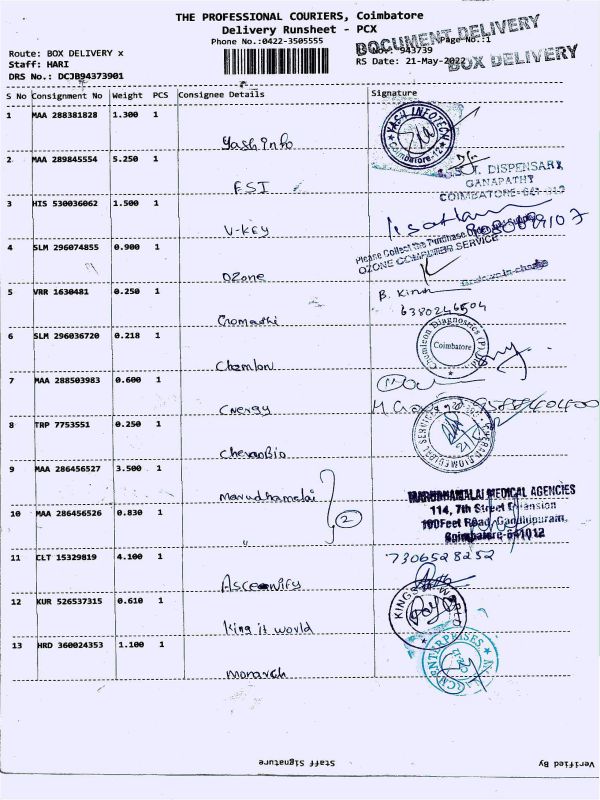 THE PROFESSIONAL COURIERS, Coimbatore
Delivery Runsheet - PCX
Phone No.:0422-3505555
DOCUMENT DELIVERY
BOX DELIVERY
Page No.:1
943739
Route: BOX DELIVERY x
Staff: HARI
RS Date: 21-May-2022
DRS No.: DCJB94373901
S No Consignment No Weight PCS Consignee Details Signature
1 MAA 288381828 1.300 1 Yash Info YASH INFOTECH Coimbatore-12
2 MAA 289845554 5.250 1 ESI DISPENSARY,
GANAPATHY
COIMBATORE-641
3 HIS 530036062 1.500 1 V-KEY
Please Collect the Purchase
4 SLM 296074855 0.900 1 Ozone OZONE COMPUTER SERVICE
5 VRR 1630481 0.250 1 B. Kiran
6380246504
6 SLM 296036720 0.218 1 Chemlon Chemleon Diagnostics (P) Ltd Coimbatore
7 MAA 288503983 0.600 1 Cnergy
8 TRP 7753551 0.250 1 CheranBio CHERAN BIOMEDICAL SERVICES
9 MAA 286456527 3.500 1 Marudhamalai MARUDHAMALAI MEDICAL AGENCIES
114, 7th Street Extension
100Feet Road, Gandhipuram,
Coimbatore-641012
10 MAA 286456526 0.830 1 " 2
11 CLT 15329819 4.100 1 7306528252
12 KUR 526537315 0.610 1 King it world KINGS IT WORLD
13 HRD 360024353 1.100 1 monarch ENTERPRISES
Staff Signature
Verified By